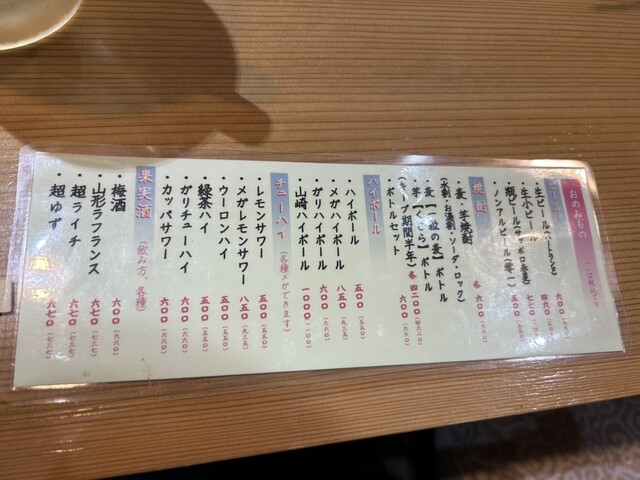 おのみもの
ビール
・生ビール(ハートランド) 六〇〇
・生小ビール 四六〇
・瓶ビール(サッポロ赤星) 七七〇
・ノンアルビール(零一) 五〇〇
焼酎
・麦・芋焼酎 各 六〇〇(六六〇)
(水割・お湯割・ソーダ・ロック)
・麦 ボトル
・芋【くじら】ボトル 各 四二〇〇(四六二〇)
(キープ期間半年)
・ボトルセット 六〇〇(六六〇)
ハイボール
・ハイボール 五〇〇(五五〇)
・メガハイボール 八五〇(九三五)
・ガリハイボール 六〇〇(六六〇)
・山崎ハイボール 一〇〇〇(一一〇〇)
チューハイ(各種メガできます)
・レモンサワー 五〇〇(五五〇)
・メガレモンサワー 八五〇(九三五)
・ウーロンハイ 五〇〇(五五〇)
・緑茶ハイ 五〇〇(五五〇)
・ガリチューハイ 六〇〇(六六〇)
・カッパサワー 六〇〇(六六〇)
果実酒(飲み方、各種)
・梅酒 六〇〇(六六〇)
・山形ラフランス 六七〇(七三七)
・超ライチ 六七〇(七三七)
・超ゆず 六七〇(七三七)